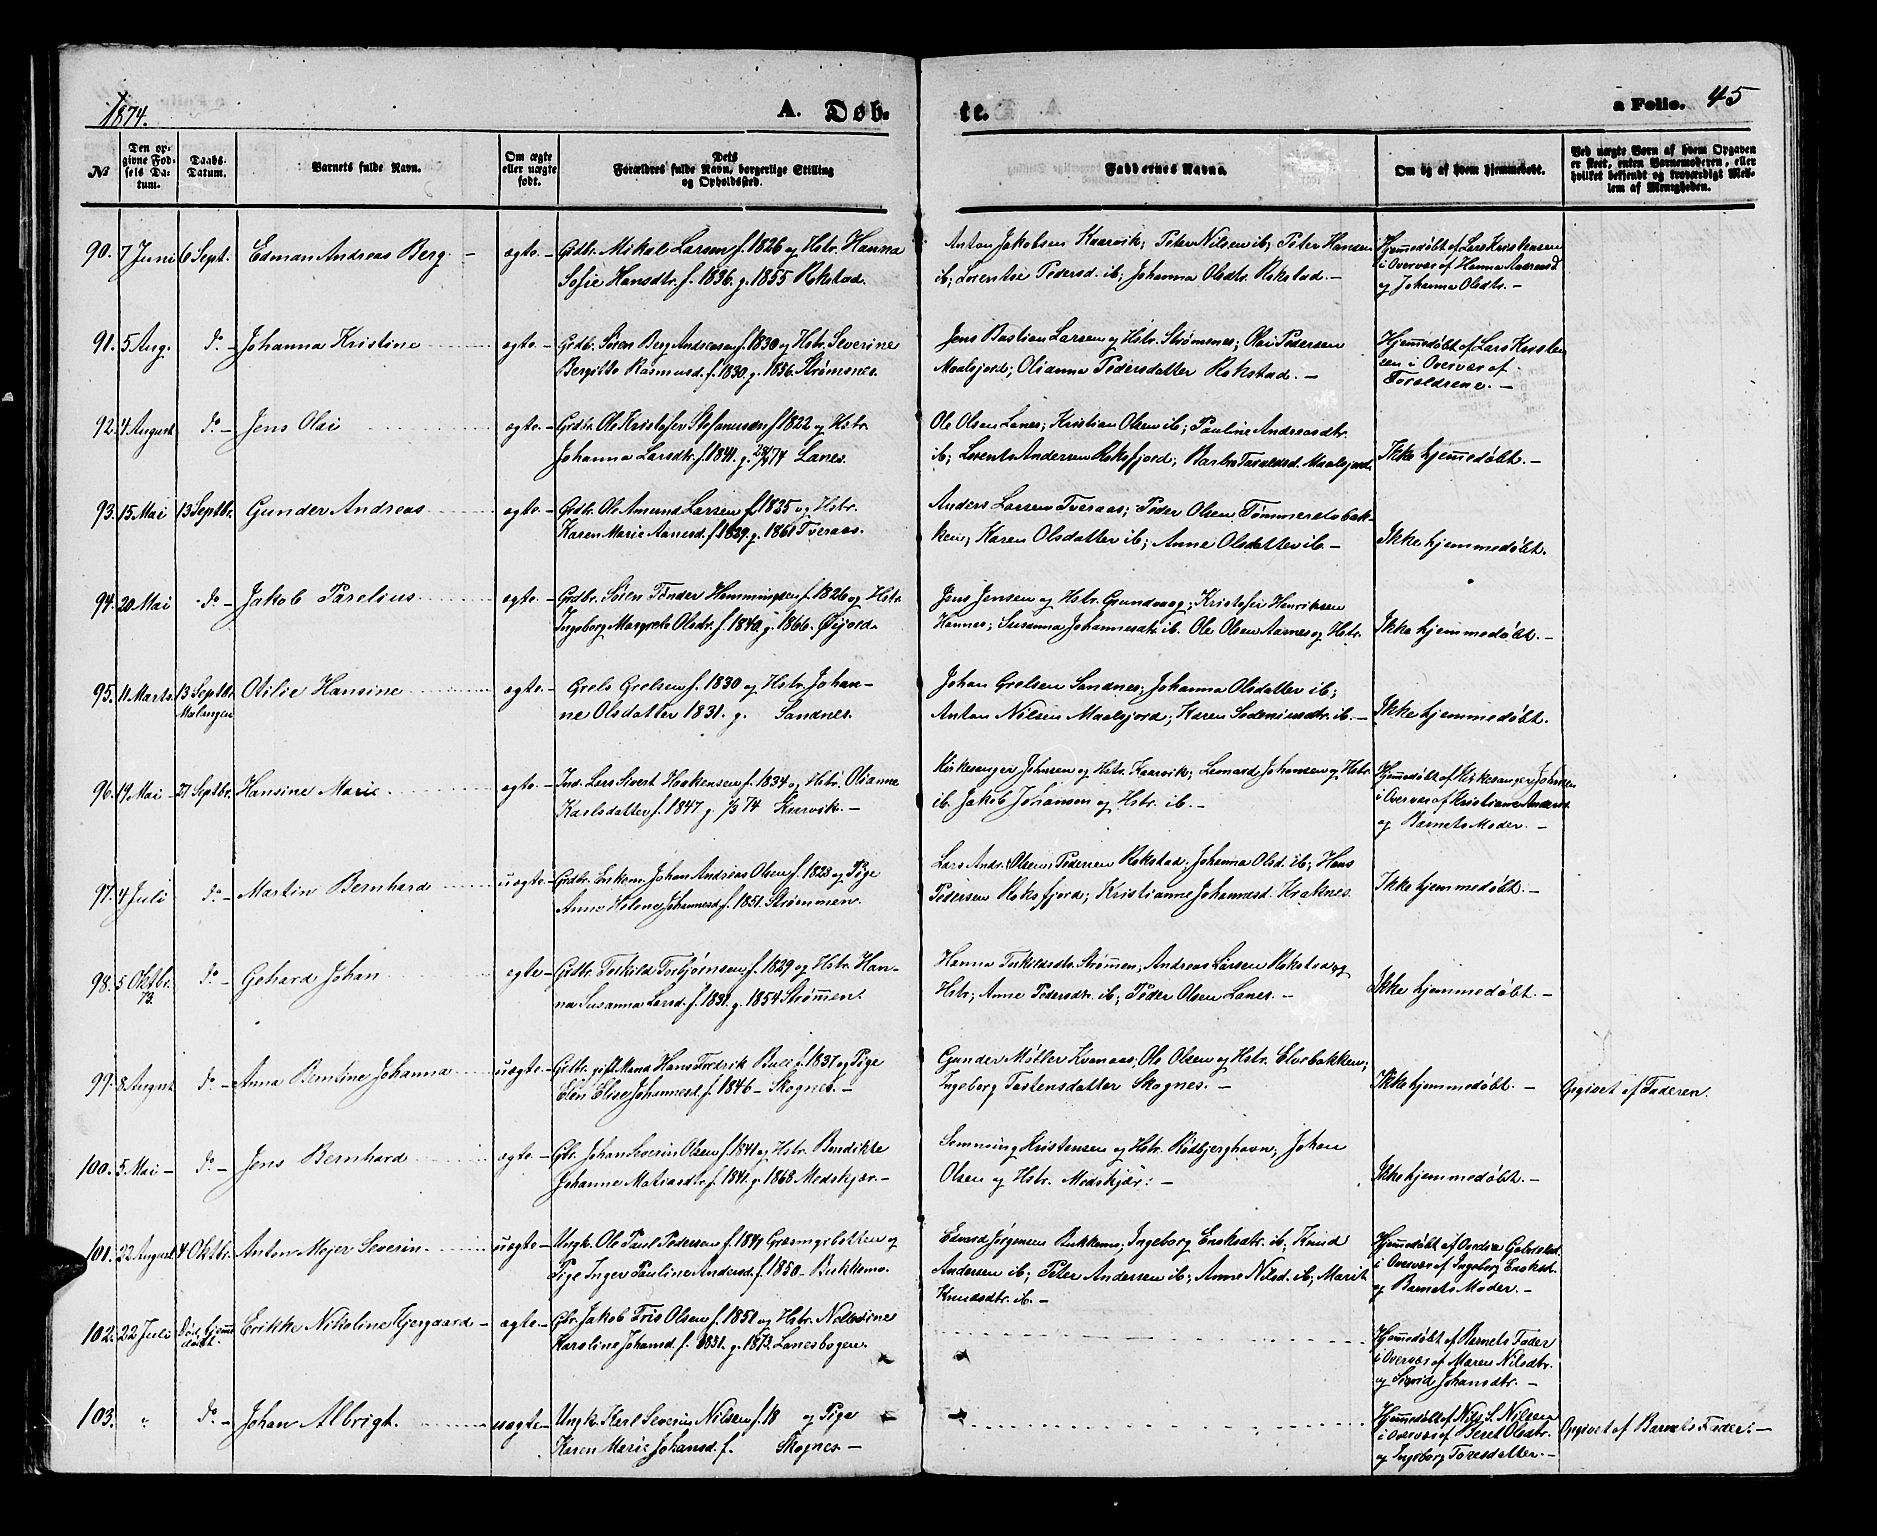 1874.
A. Døb-
te.
a Folio. 45
№
Den op-
givne Fød-
sels Da-
tum.
Daabs-
Datum.
Barnets fulde Navn.
Om ægte
eller uægte
født.
Dets
Forældres fulde Navn, borgerlige Stilling
og Opholdssted.
Faddernes Navne.
Om og af hvem hjemmedøbt.
Ved uægte Børn af hvem Opgaven
er skeet, enten Barnemoderen, eller
hvilket bekjendt og troværdigt Med-
lem af Menigheden.
90. 7 Juni 6 Sept. Edman Andreas Berg. – ægte. – Grdbr. Mikal Larsen f. 1826 og Hstr. Hanna
Sofie Hansdtr. f. 1836. g. 1855 Rokstad.
Anton Jakobsen Kaarvik; Peter Nilsen ib; Peter Hansen
ib; Lorentse Pedersd. ib; Johanna Olsdtr. Rokstad. –
Hjemmedøbt af Lars Kristensen
i Overvær af Hanna Andreasd
og Johanna Olsdtr. –
91. 5 Aug. do – Johanna Kristine ægte. – Grdbr. Søren Berg Andreasen f. 1830 og Hstr. Severine
Bergitte Rasmusd. f. 1830. g. 1856. Strømsnes.
Jens Bastian Larsen og Hstr. Strømsnes; Olai Pedersen
Maalsjord; Olianna Pedersdatter Rokstad. –
Hjemmedøbt af Lars Kristen
sen i Overvær af
Forældrene. –
92. 4 August do – Jens Olai ægte. – Grdbr. Ole Kristofer Stefanusen f. 1822 og Hstr.
Johanna Larsdtr. f. 1841. g. 74 Lanes.
Ole Olsen Lanes; Kristian Olsen ib; Pauline Andreasdtr.
ib; Lorents Andersen Roksfjord; Barbra Taraldsd. Maalsjord.
Ikke hjemmedøbt. –
93. 15 Mai 13 Septbr. Gunder Andreas ægte. – Grdbr. Ole Amund Larsen f. 1825 og Hstr.
Karen Marie Aanesd. f. 1829. g. 1861 Tveraas.
Anders Larsen Tveraas; Peder Olsen Tømmerelvbak-
ken; Karen Olsdatter ib; Anne Olsdatter ib. –
Ikke hjemmedøbt.
94. 20 Mai do – Jakob Parelius. ægte. – Grdbr. Søren Tønder Hemmingsen f. 1826 og Hstr.
Ingeborg Margrete Olsdtr. f. 1840. g. 1866. Øijord.
Jens Jensen og Hstr. Grundvaag; Kristofer Henriksen
Hannes; Susanna Johannesdtr. ib. Ole Olsen Aarnes og Hstr.
Ikke hjemmedøbt. –
95. 11 Marts 13 Septbr. Otilie Hansine ægte. – Grels Grelsen f. 1830 og Hstr. Johan-
Malangen
ne Olsdatter 1831. g. Sandnes.
Johan Grelsen Sandnes; Johanna Olsdatter ib;
Anton Nilsen Maalsjord; Karen Sodeniusdtr. ib. –
Ikke hjemmedøbt.
96. 19 Mai 27 Septbr. Hansine Marie. ægte. – Ind. Lars Sivert Haakensen f. 1834 og Hstr. Olianne
Karlsdatter f. 1847 g. 74 Kaarvik. –
Kirkesanger Johnsen og Hstr. Kaarvik; Leonard Johansen og Hstr.
ib. Jakob Johansen og Hstr. ib. –
Hjemmedøbt af Kirkesanger Johnsen
i Overvær af Kristiane Andersd.
og Barnets Moder. –
97. 4 Juli do – Martin Bernhard uægte. – Grdbr. Enkem. Johan Andreas Olsen f. 1823 og Pige
Anne Helene Johannesd. f. 1851. Strømmen.
Lars Andr. Olsen, Pedersen Rokstad. Johanna Olsd. ib; Hans
Pedersen Roksfjord; Kristianne Johannesd. Kraknes.
Ikke hjemmedøbt. –
98. 5 Oktbr. do – Gehard Johan ægte – Grdbr. Torkild Torbjørnsen f. 1829 og Hstr. Han-
73.
na Susanna Larsd. f. 1831 g. 1854 Strømmen.
Hanna Torkildsdtr. Strømmen; Andreas Larsen Rokstad og
Hstr; Anne Pedersdtr. ib; Peder Olsen Lanes. –
Ikke hjemmedøbt. –
99. 8 August do – Anna Berntine Johanna uægte. – Grdbr. gift Mand Hans Fredrik Bull f. 1837 og Pige
Elen Elise Johannesd. f. 1846 – Skognes. –
Gunder Møller Kvanaas; Ole Olsen og Hstr. Elvebakken;
Ingeborg Tostensdatter Skognes. –
Ikke hjemmedøbt. –
Opgivet af Faderen.
100. 5 Mai – do – Jens Bernhard ægte. – Gbr. Johan Severin Olsen f. 1841 og Hstr. Bendikte
Johanne Matiasdtr. f. 1841. g. 1868 Medskjær. –
Semming Kristensen og Hstr. Rødbjerghavn; Johan
Olsen og Hstr. Medskjær. –
Ikke hjemmedøbt. –
101. 22 August 4 Oktbr. Anton Mejer Severin. uægte. – Ungk. Ole Paul Pedersen f. 1849 Græsmyrbotten og
Pige Inger Pauline Andersd. f. 1850. Bukkemo.
Edvard Jørgensen Bukkemo; Ingeborg Enoksdtr. ib; Knud
Andersen ib; Peter Andersen ib; Anne Nilsd. ib; Marit
Knudsdtr. ib. –
Hjemmedøbt af
i Overvær af Ingeborg Enoksd.
og Barnets Moder. –
102. 22 Juli Død, hjemme Erikke Nikoline Kjergaard – ægte. – Gbr. Jakob Friis Olsen f. 1851 og Hstr.
døbt
Karoline Johansd. f. 1851. g. 1873. Lanesbogen.
Hjemmedøbt af Barnets Fader
i Overvær af Maren Nilsdtr.
og Sivrid Johansdtr. –
103. " do – Johan Albrigt. uægte – Ungk. Karl Severin Nilsen f. 18 og Pige
Karen Marie Johansd. f. Skognes –
Hjemmedøbt af Nils S. Nilsen
i Overvær af Beret Olsdtr.
og Ingeborg Toresdatter. –
Opgivet af Barnets Fader. –